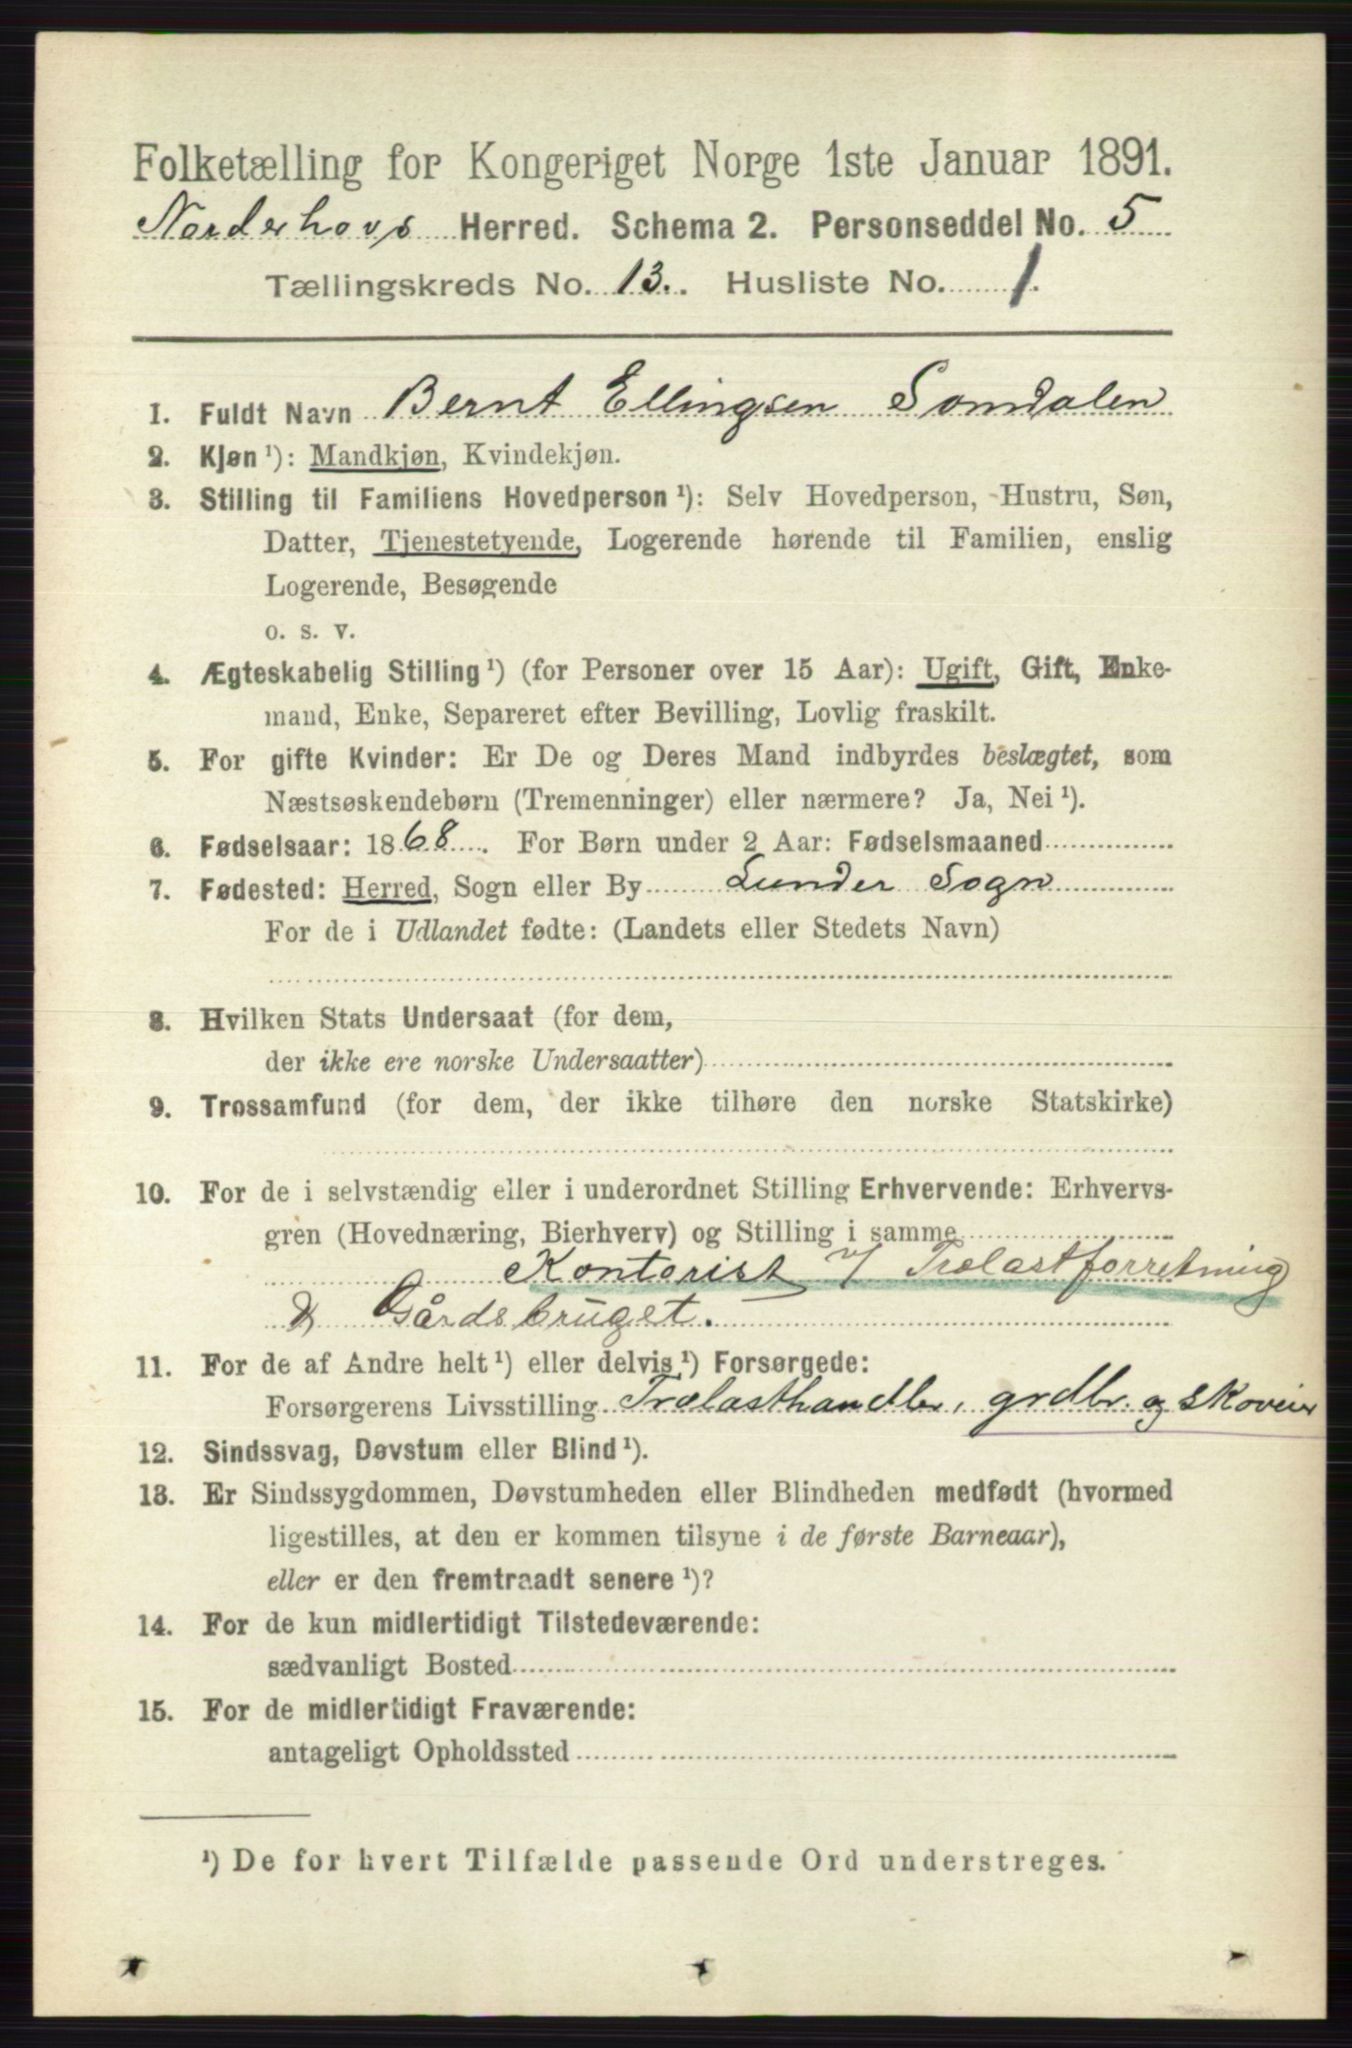 Folketælling for Kongeriget Norge 1ste Januar 1891.
Norderhovs Herred. Schema 2. Personseddel No. 5
Tællingskreds No. 13. Husliste No. 1.
1. Fuldt Navn Bernt Ellingsen Somdalen
2. Kjøn ¹): Mandkjøn, Kvindekjøn.
3. Stilling til Familiens Hovedperson ¹): Selv Hovedperson, Hustru, Søn,
Datter, Tjenestetyende, Logerende hørende til Familien, enslig
Logerende, Besøgende
o. s. v.
4. Ægteskabelig Stilling ¹) (for Personer over 15 Aar): Ugift, Gift, Enke-
mand, Enke, Separeret efter Bevilling, Lovlig fraskilt.
5. For gifte Kvinder: Er De og Deres Mand indbyrdes beslægtet, som
Næstsøskendebørn (Tremenninger) eller nærmere? Ja, Nei ¹).
6. Fødselsaar: 1868. For Børn under 2 Aar: Fødselsmaaned
7. Fødested: Herred, Sogn eller By Lunder Sogn
For de i Udlandet fødte: (Landets eller Stedets Navn)
8. Hvilken Stats Undersaat (for dem,
der ikke ere norske Undersaatter)
9. Trossamfund (for dem, der ikke tilhøre den norske Statskirke)
10. For de i selvstændig eller i underordnet Stilling Erhvervende: Erhvervs-
gren (Hovednæring, Bierhverv) og Stilling i samme
Kontorist v/ Trælastforretning
& Gårdsbruget.
11. For de af Andre helt ¹) eller delvis ¹) Forsørgede:
Forsørgerens Livsstilling Trælasthandler, grdbr. og skoveier
12. Sindssvag, Døvstum eller Blind ¹).
13. Er Sindssygdommen, Døvstumheden eller Blindheden medfødt (hvormed
ligestilles, at den er kommen tilsyne i de første Barneaar),
eller er den fremtraadt senere ¹)?
14. For de kun midlertidigt Tilstedeværende:
sædvanligt Bosted
15. For de midlertidigt Fraværende:
antageligt Opholdssted
¹) De for hvert Tilfælde passende Ord understreges.